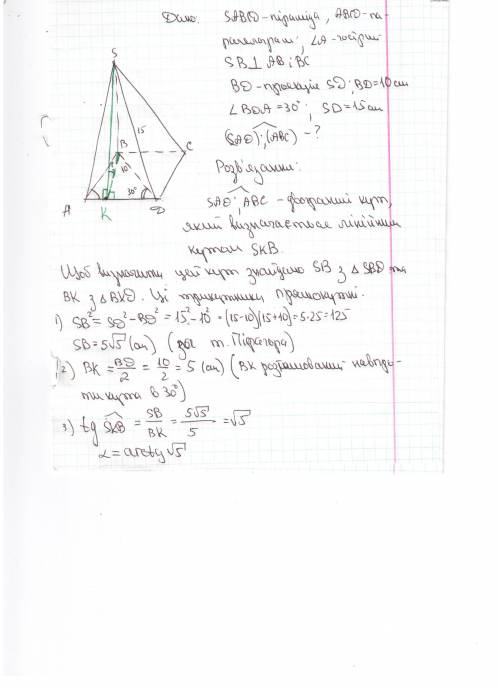 Дано. SABCD-піраміда, ABCD-па-
ралелограм; ∠A-гострий
SB⊥AB; BC
BD-проекція SD; BD=10см
∠BDA=30°; SD=15см
(SAD);(ABC) - ?
Розв'язання:
SAD; ABC - двогранний кут,
який визначається лінійним
кутом SKB.
Щоб визначити цей кут знайдемо SB з △SBD та
BK з △BKD. Ці трикутники прямокутні.
1) SB²=SD²-BD²=15²-10²=(15-10)(15+10)=5·25=125
SB=5√5 (см) (за т. Піфагора)
2) BK = BD/2 = 10/2 = 5 (см) (BK розташований навпро-
ти кута в 30°)
3) tg SKB = SB/BK = 5√5/5 = √5
α=arctg√5
S
15
B
C
10
30°
A
K
D